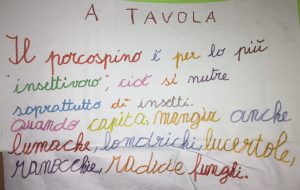 A TAVOLA
Il porcospino è per lo più
"insettivoro", cioè si nutre
soprattutto di insetti.
Quando capita, mangia anche
lumache, lombrichi, lucertole,
ranocchie, radici e funghi.